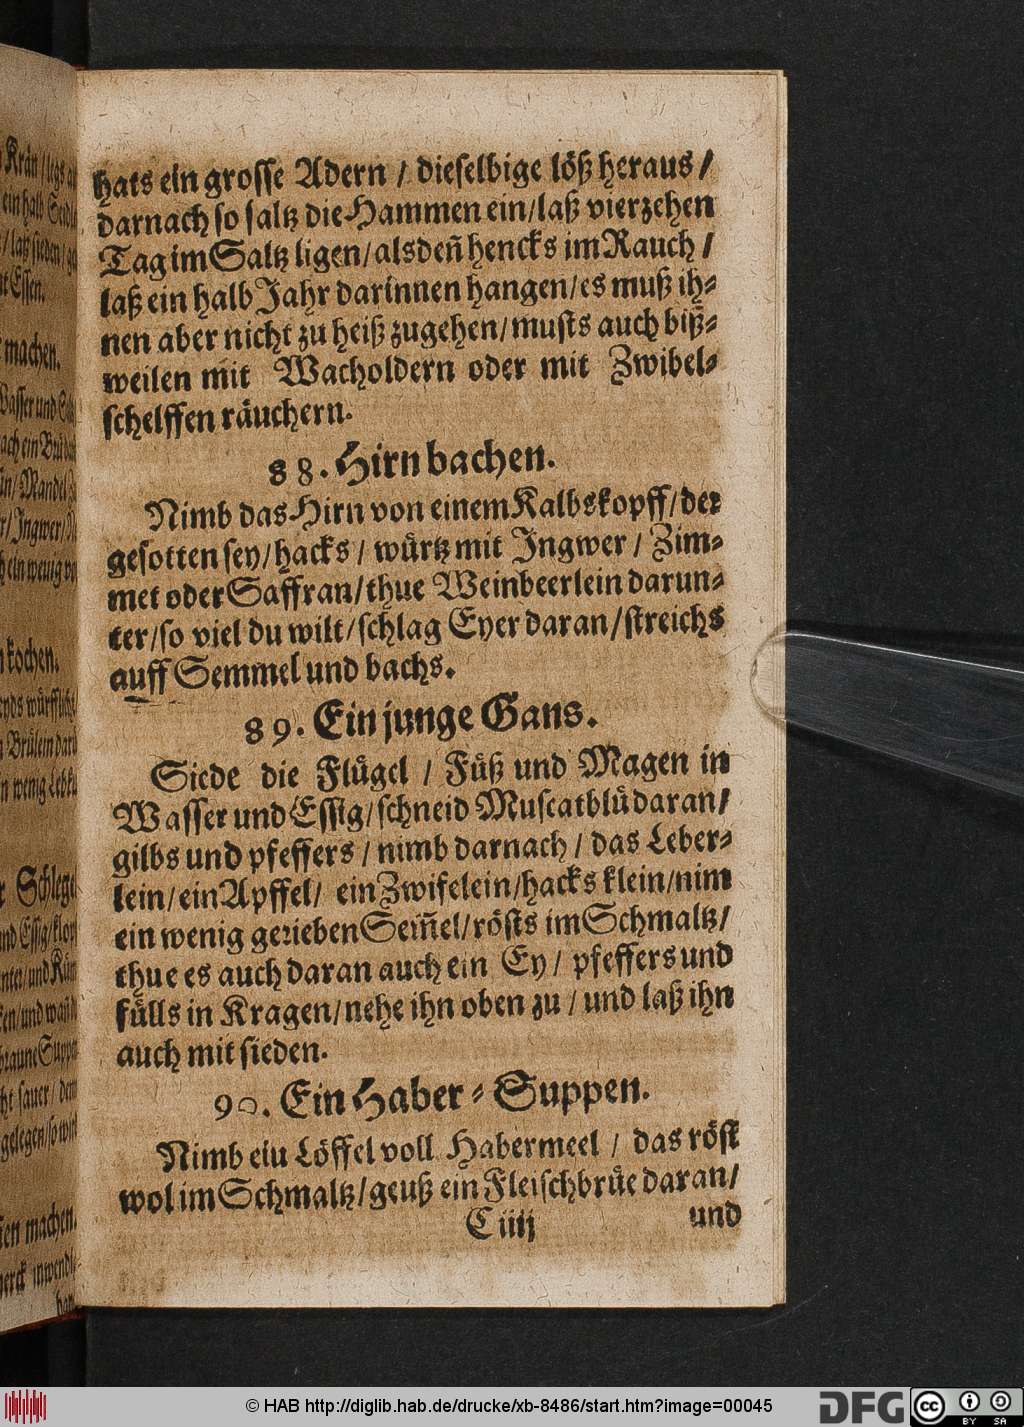 hats ein grosse Adern / dieselbige löß heraus /
darnach so saltz die Hammen ein / laß vierzehen
Tag im Saltz ligen / alsdeñ hencks im Rauch /
laß ein halb Jahr darinnen hangen / es muß ih-
nen aber nicht zu heiß zugehen / musts auch biß-
weilen mit Wacholdern oder mit Zwibel-
schelffen räuchern.
88. Hirn bachen.
Nimb das Hirn von einem Kalbskopff / der
gesotten sey / hacks / würtz mit Ingwer / Zim-
met oder Saffran / thue Weinbeerlein darun-
ter / so viel du wilt / schlag Eyer daran / streichs
auff Semmel und bachs.
89. Ein junge Gans.
Siede die Flügel / Füß und Magen in
Wasser und Essig / schneid Muscatblü daran /
gilbs und pfeffers / nimb darnach / das Leber-
lein / ein Apffel / ein Zwifelein / hacks klein / nim
ein wenig gerieben Sem̃el / rösts im Schmaltz /
thue es auch daran auch ein Ey / pfeffers und
fülls in Kragen / nehe ihn oben zu / und laß ihn
auch mit sieden.
90. Ein Haber-Suppen.
Nimb eiu Löffel voll Habermeel / das röst
wol im Schmaltz / geuß ein Fleischbrüe daran /
C iiij und
© HAB http://diglib.hab.de/drucke/xb-8486/start.htm?image=00045
DFG
cc BY SA